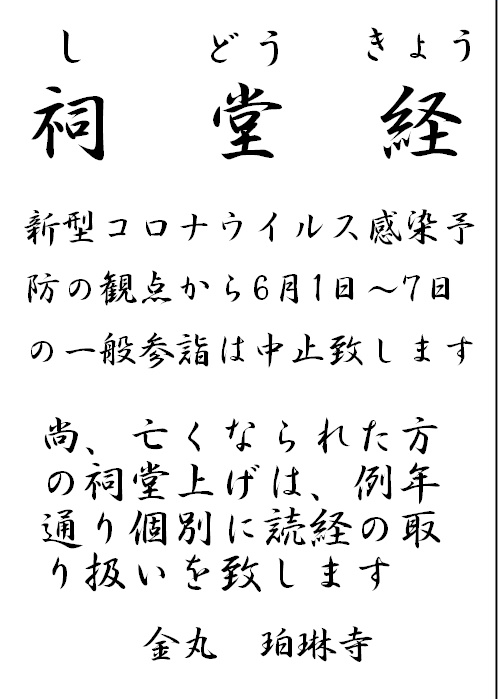 し どう きょう
祠 堂 経
新型コロナウイルス感染予
防の観点から6月1日~7日
の一般参詣は中止致します
尚、亡くなられた方
の祠堂上げは、例年
通り個別に読経の取
り扱いを致します
金丸 珀琳寺